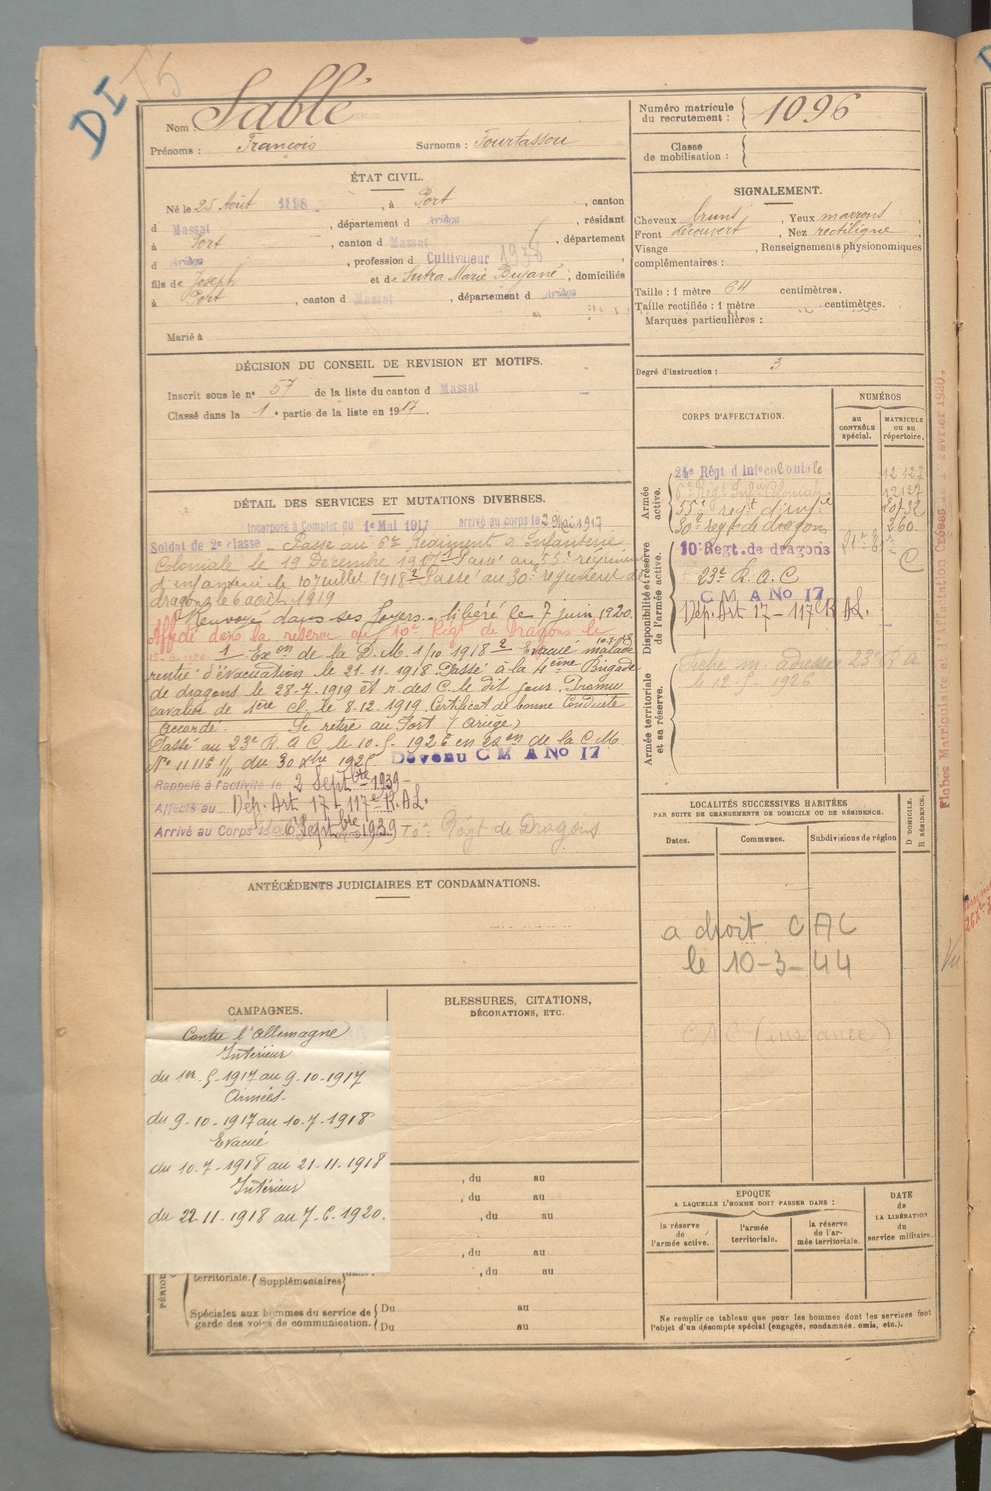 DI
Nom Sablé
Prénoms : François Surnoms : Fourtassou
Numéro matricule du recrutement : 1096
Classe de mobilisation :
ÉTAT CIVIL.
Né le 25 Août 1898, à Port, canton
d Massat, département d Ariège, résidant
à Port, canton d Massat, département
d Ariège, profession d Cultivateur
fils de Joseph et de Sutra Marie, domiciliés
à Port, canton d Massat, département d Ariège
Marié à
SIGNALEMENT.
Cheveux bruns, Yeux marrons,
Front découvert, Nez rectiligne
Visage , Renseignements physionomiques
complémentaires :
Taille : 1 mètre 64 centimètres.
Taille rectifiée : 1 mètre centimètres.
Marques particulières :
Degré d'instruction : 3
DÉCISION DU CONSEIL DE REVISION ET MOTIFS.
Inscrit sous le n° 57 de la liste du canton d Massat
Classé dans la 1e partie de la liste en 1917.
DÉTAIL DES SERVICES ET MUTATIONS DIVERSES.
Incorporé à Compter du 1er Mai 1917 arrivé au corps le 2 Mai 1917
Soldat de 2e classe _ Passé au 6e Régiment d'Infanterie
Coloniale le 19 Décembre 1917 Passé au 55e régiment
d'infanterie le 10 Juillet 1918 Passé au 30e régiment de
dragons le 6 août 1919
Renvoyé dans ses foyers _ libéré le 7 juin 1920.
Affecté dans la réserve au 10e Régt de Dragons le
1 Exon de la D.M. 1/10 1918 2 Evacué malade 10-7-18
rentré d'évacuation le 21.11.1918. Passé à la 4ème Brigade
de dragons le 28-7-1919 et r. des C. le dit jour. Promu
cavalier de 1ère cl. le 8-12-1919. Certificat de bonne Conduite
Accordé. Se retire au Port (Ariège)
Passé au 23e R.A.C. le 10-5-1926 en exon de la C.M.
N° 11116 1/11 du 30 Xbre 1925 Devenu C M A No 17
Rappelé à l'activité le 2 Septbre 1939 -
Affecté au Dép. Art 17 + 117e R.A.L.
Arrivé au Corps le 6 Septbre 1939
ANTÉCÉDENTS JUDICIAIRES ET CONDAMNATIONS.
CAMPAGNES.
Contre l'Allemagne
Intérieur
du 1er-5-1917 au 9-10-1917
Armées.
du 9-10-1917 au 10-7-1918
Evacué
du 10-7-1918 au 21-11-1918
Intérieur
du 22.11.1918 au 7.6.1920.
BLESSURES, CITATIONS,
DÉCORATIONS, ETC.
, du au
, du au
, du au
, du au
, du au
territoriale. Supplémentaires dans
Spéciales aux hommes du service de garde des voies de communication. Du au
Du au
CORPS D'AFFECTATION.
NUMÉROS
au CONTRÔLE spécial.
MATRICULE ou au répertoire.
Armée active.
24e Régt d'Infie coloniale 12 127
6e Régt Infie Coloniale 12127
55e régt d'infie
30e régt de dragons 360
Disponibilité et réserve de l'armée active.
10e Régt. de dragons
23e R.A.C
C M A No 17
Dép. Art 17 - 117e R.A.L.
Armée territoriale et sa réserve.
Fiche m. adressée 23e R A
le 12-5-1926
LOCALITÉS SUCCESSIVES HABITÉES
PAR SUITE DE CHANGEMENTS DE DOMICILE OU DE RÉSIDENCE.
Dates. Communes. Subdivisions de région
D. DOMICILE.
R. RÉSIDENCE.
a droit C A C
le 10-3-44
EPOQUE
A LAQUELLE L'HOMME DOIT PASSER DANS :
la réserve de l'armée active.
l'armée territoriale.
la réserve de l'armée territoriale.
DATE de LA LIBÉRATION du service militaire.
Ne remplir ce tableau que pour les hommes dont les services font
l'objet d'un décompte spécial (engagés, condamnés, omis, etc.).